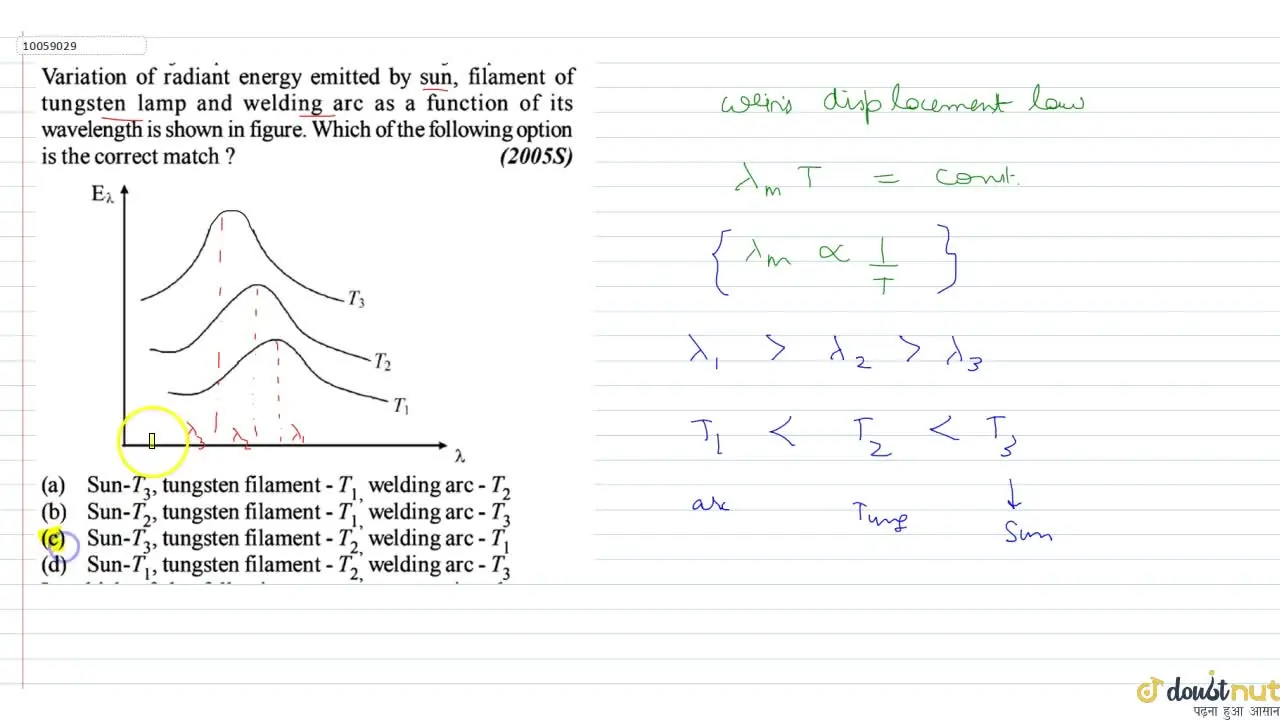 10059029
Variation of radiant energy emitted by sun, filament of
tungsten lamp and welding arc as a function of its
wavelength is shown in figure. Which of the following option
is the correct match ? (2005S)
Eλ
T3
T2
T1
λ3 λ2 λ1
λ
(a) Sun-T3, tungsten filament - T1, welding arc - T2
(b) Sun-T2, tungsten filament - T1, welding arc - T3
(c) Sun-T3, tungsten filament - T2, welding arc - T1
(d) Sun-T1, tungsten filament - T2, welding arc - T3
displacement law
λm T = const.
{ λm ∝ 1/T }
λ1 > λ2 > λ3
T1 < T2 < T3
arc Tung Sun
doubtnut
पढ़ना हुआ आसान